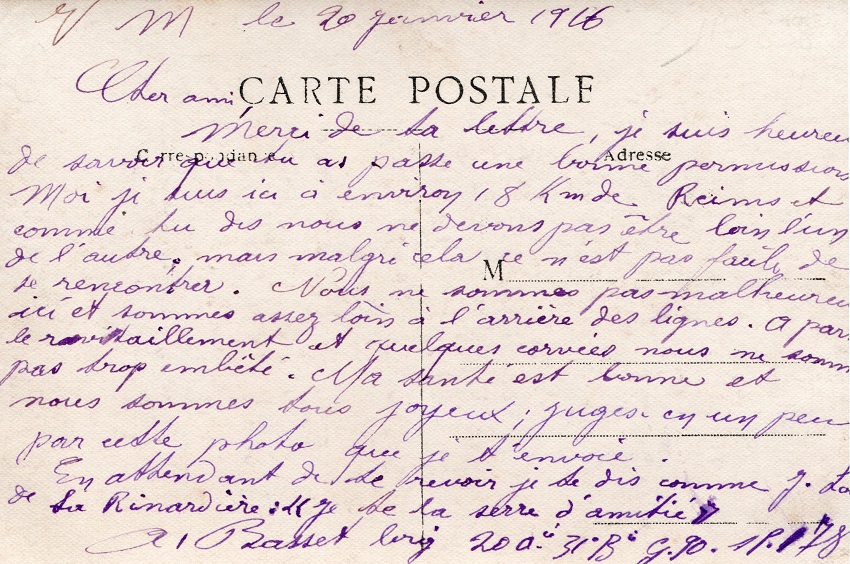 M le 20 janvier 1916
CARTE POSTALE
Cher ami,
Merci de ta lettre, je suis heureu
Correspondance
Adresse
de savoir que tu as passe une bonne permission
Moi je suis ici à environ 18 Km de Reims et
comme tu dis nous ne devons pas être loin l'un
de l'autre. mais malgré cela ce n'est pas facile de
M
se rencontrer. Nous ne sommes pas malheureu
ici et sommes assez loin à l'arrière des lignes. A part
le ravitaillement et quelques corvées nous ne somm
pas trop embêté. Ma santé est bonne et
nous sommes tous joyeux; juges-en un peu
par cette photo que je t'envoie.
En attendant de te revoir je te dis comme J.
de La Rinardière: "Je te la serre d'amitié"
Basset 20 a 31e Bie S.P. 178